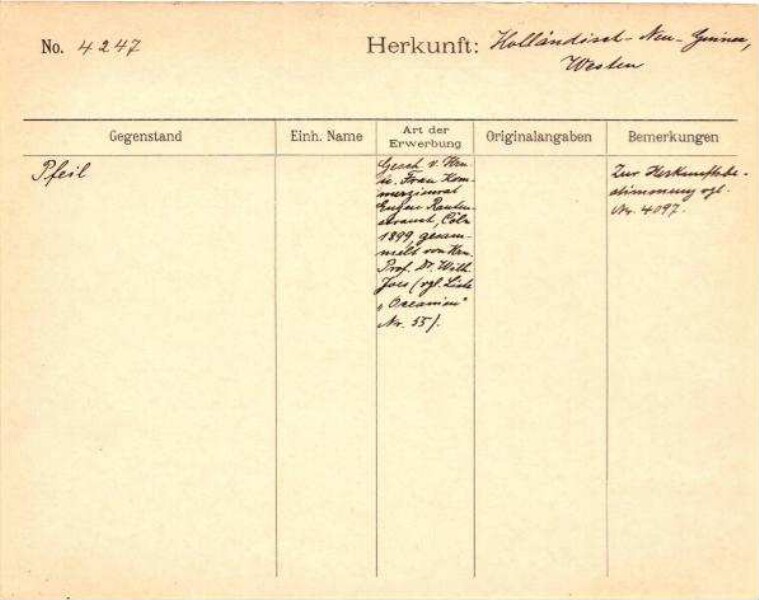 No. 4247
Herkunft: Holländisch-Neu-Guinea,
Westen
Gegenstand
Einh. Name
Art der
Erwerbung
Originalangaben
Bemerkungen
Pfeil
Gesch. v. Hrn.
u. Frau Kom-
merzienrat
Eugen Rauten-
strauch, Cöln
1899, gesam-
melt von Hrn.
Prof. Dr. Wilh.
Joes (vgl. Liste
"Oceanien"
Nr. 55).
Zur Herkunftsbe-
stimmung vgl.
Nr. 4097.